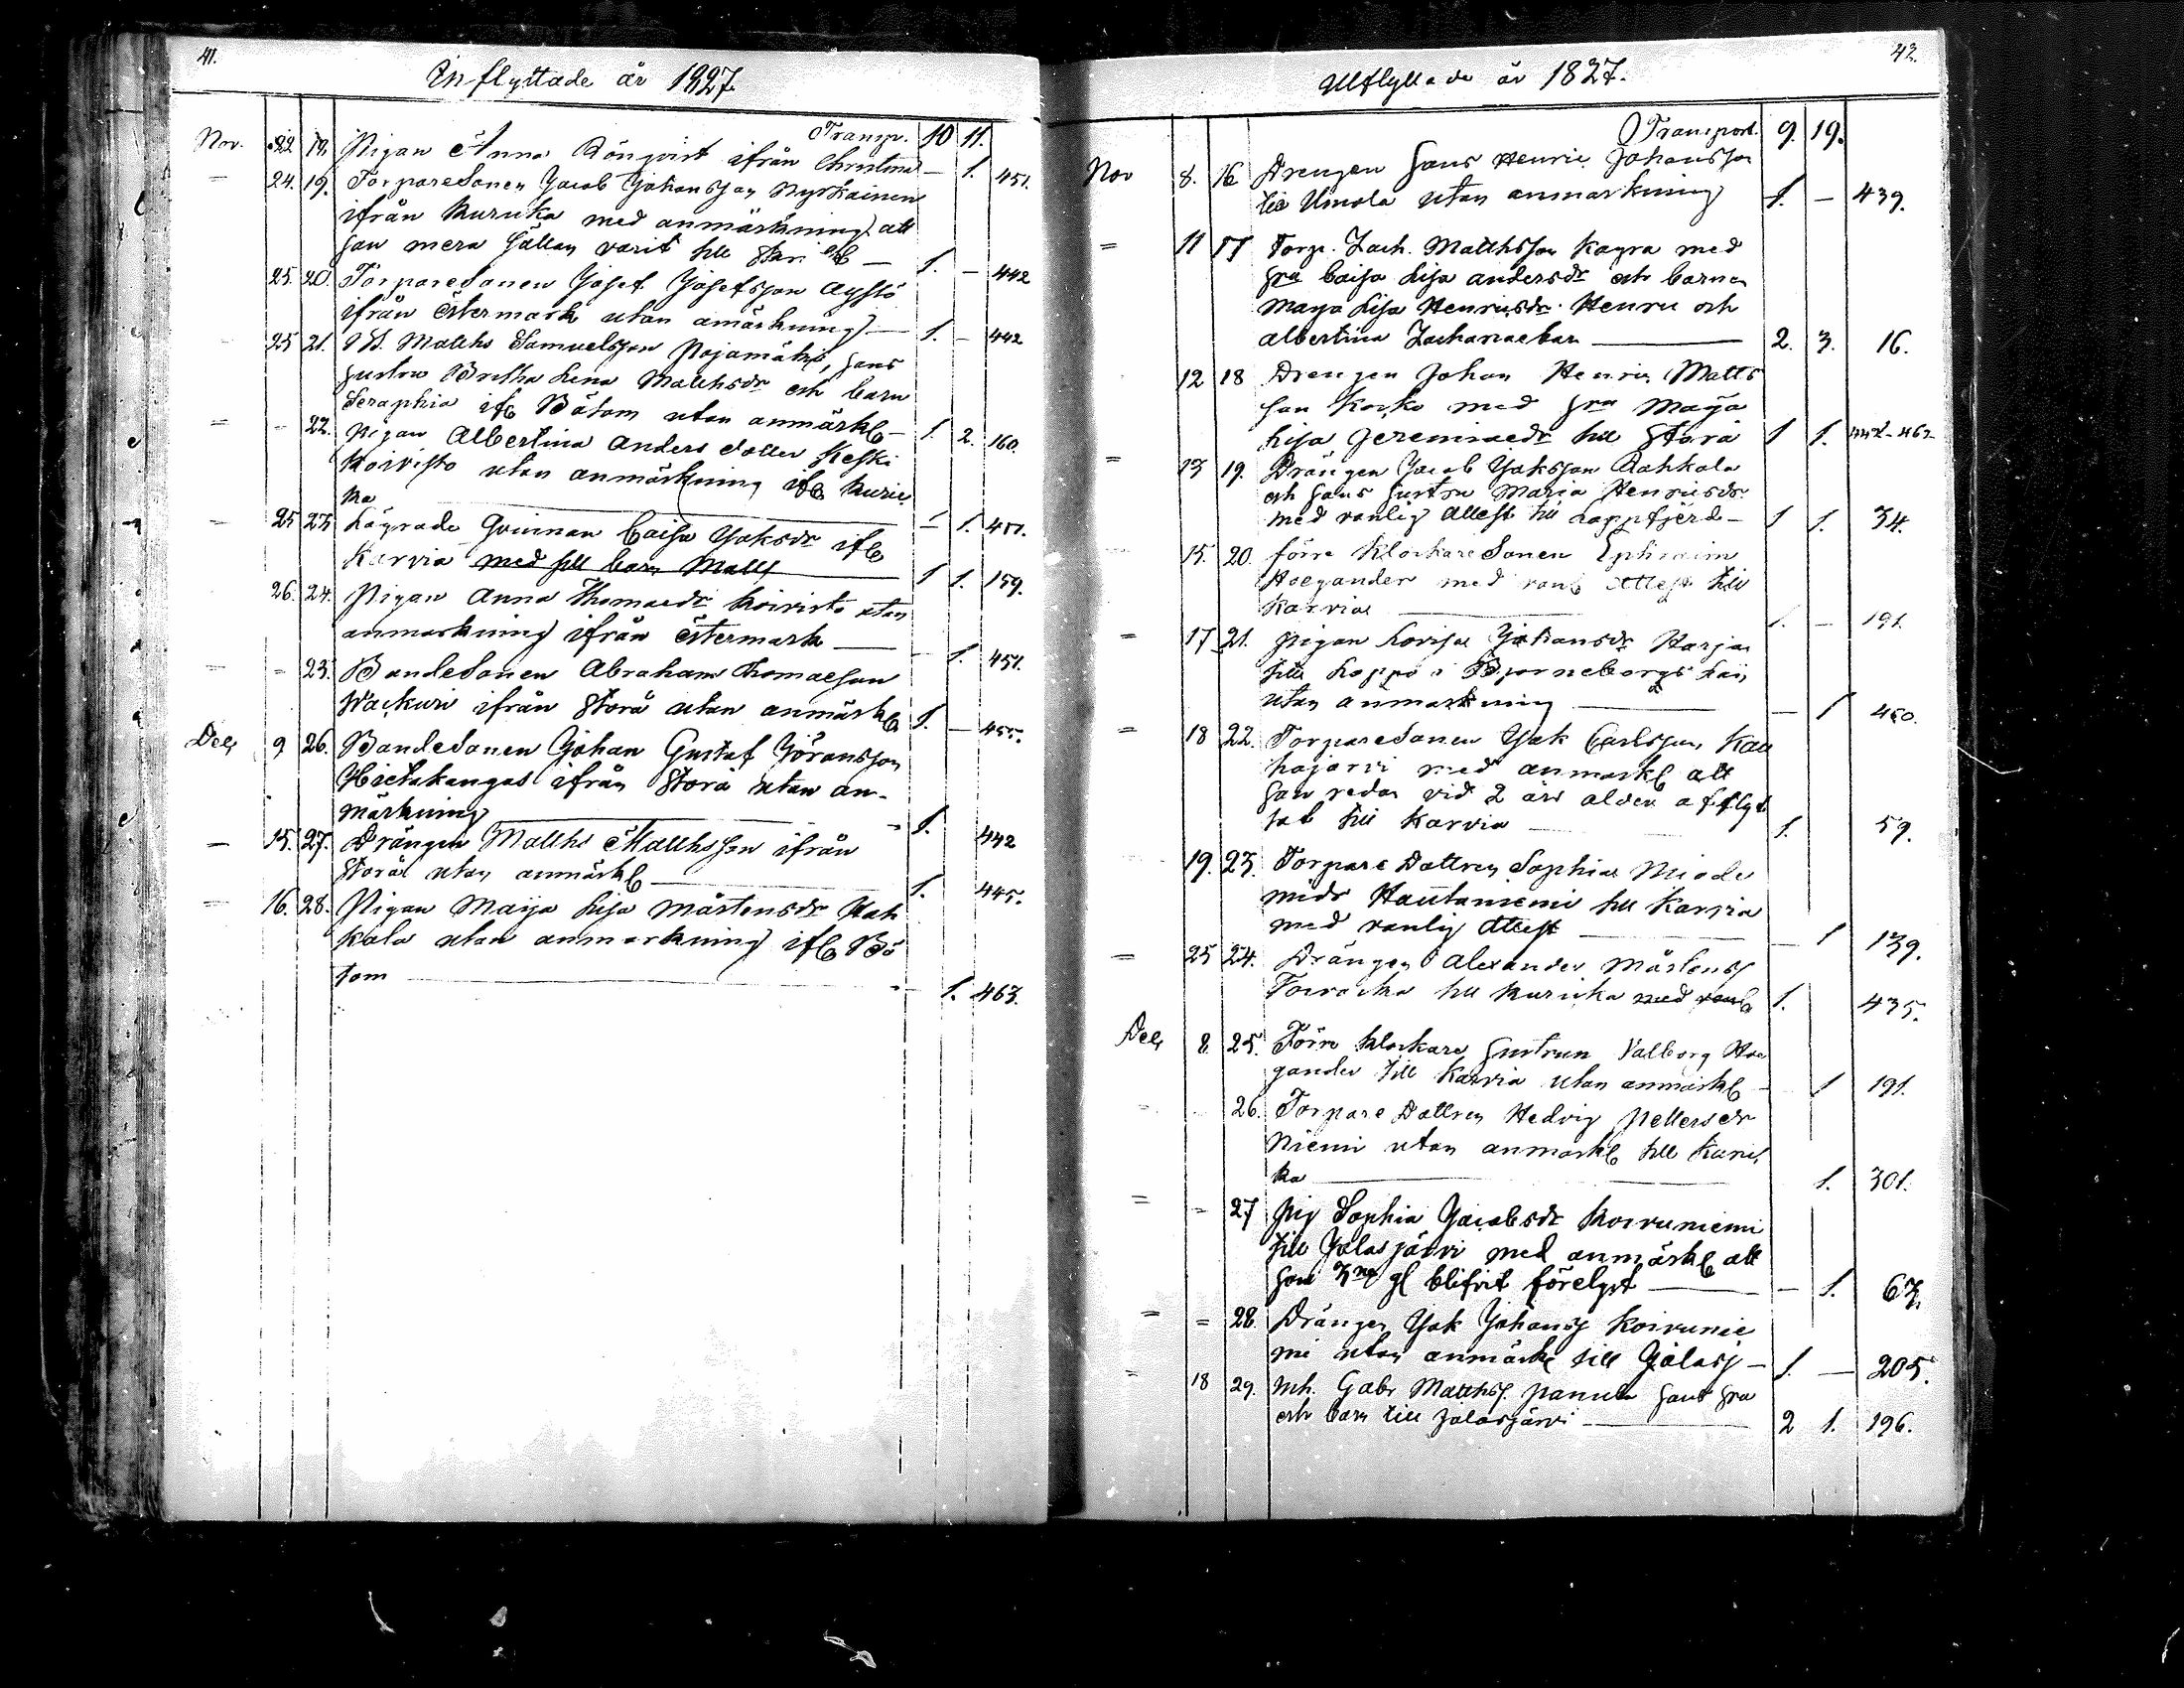 41.
Inflyttade år 1827.
Transp. 10 11.
Nov. 22 18. Pigan Anna Rönqvist ifrån Christina — 1. 451.
— 24. 19. Torparesonen Jacob Johansson Myrkainen
ifrån Kurika med anmärkning att
han mera sällan varit till — 1. — 442
25. 20. Torparesonen Josef Josefsson Äystö
ifrån Östermark utan amärkning — 1. — 442
25 21. Matths Samuelsson Pojamäki, hans
hustru Britha Lena Matthsdr och barn
Seraphia ifr Bötom utan anmärk — 1. 2. 160.
= – 22. Pigan Albertina Anders dotter Keski
Koivisto utan anmärkning ifr Kurie
ka — 1. 451.
25 23 Lägrade Qvinnan Caisa Jaksdr ifr
Karvia med sitt barn Matts 1 1. 159.
26. 24. Pigan Anna Thomaedr Koivisto utan
anmarkning ifrån Östermark — 1. 451.
– = 25. Bondesonen Abraham Thomaeson
Wäckuri ifrån Storå utan anmärk 1. — 455.
Dec 9 26. Bondesonen Johan Gustaf Jöransson
Hietakangas ifrån Storå utan an-
märkning — 1. 442
— 15. 27. Drängen Matths Matthsson ifrån
Storå utan anmärk — 1. 445.
— 16. 28. Pigan Maija Lisa Mårtensdr Rah
kola utan anmarkning ifr Bö
tom — 1. 463.
42.
Utflyttade år 1827.
Transport. 9. 19.
Nov 8. 16 Drengen Hans Henric Johansson
till Ulmola utan anmarkning 1. — 439.
= 11 17 Torp. Zach. Matthsson Kagra med
hru Caisa Lisa Andersdr och barnen
Maya Lisa Henriksdr Henric och
Albertina Zachariaebarn — 2. 3. 16.
12 18 Drengen Johan Henric Matts
son Korko med hru Maja
Lisa Jeremiaedr till Storå 1 1. 442-462
= 13 19. Drängen Jacob Jaksson Rahkola
och hans hustru Maria Henricsdr
med vanlig attest till Lappfjerd — 1 1. 34.
15. 20. förre Klockare Sonen Ephraim
Hoegander med vanl attest till
Karvia — 1. — 191.
= 17 21. Pigan Lovisa Johansdr Harja
till Koppo i Bjorneborgs län
utan anmarkning — 1 460.
= 18 22. Torparesonen Jak Carlsson Kau
hajarvi med anmarkl att
han redan vid 2 års alder afflyt
tat till Karvia — 1. 59.
19. 23. Torpare Dottren Sophia Miode
midr Hautaniemi till Karvia
med vanlig attest — 1 139.
— 25 24. Drängen Alexander Mårtenss
Toivacka till Kuricka med vanl 1. 435.
Dec 8 25. Förre Klockare hustrun Valborg Hoe
gander till Karvia utan anmärkl – 1 191.
26. Torpare Dottren Hedvig Pettersdr
Niemi utan anmarkl till Kurik
ka — 1. 301.
= = 27 Pig Sophia Jacobsdr Koivuniemi
till Jalasjärvi med anmärkl att
hon 3ne gl blifvit förelyst — – 1. 67.
= = 28. Drängen Jak Johanss Koivunie
mi utan anmärkl till Jalasj — 1. — 205.
= 18 29. Inh. Gabr Matthss. Panula hans hru
och barn till Jalasjärvi — 2 1. 196.